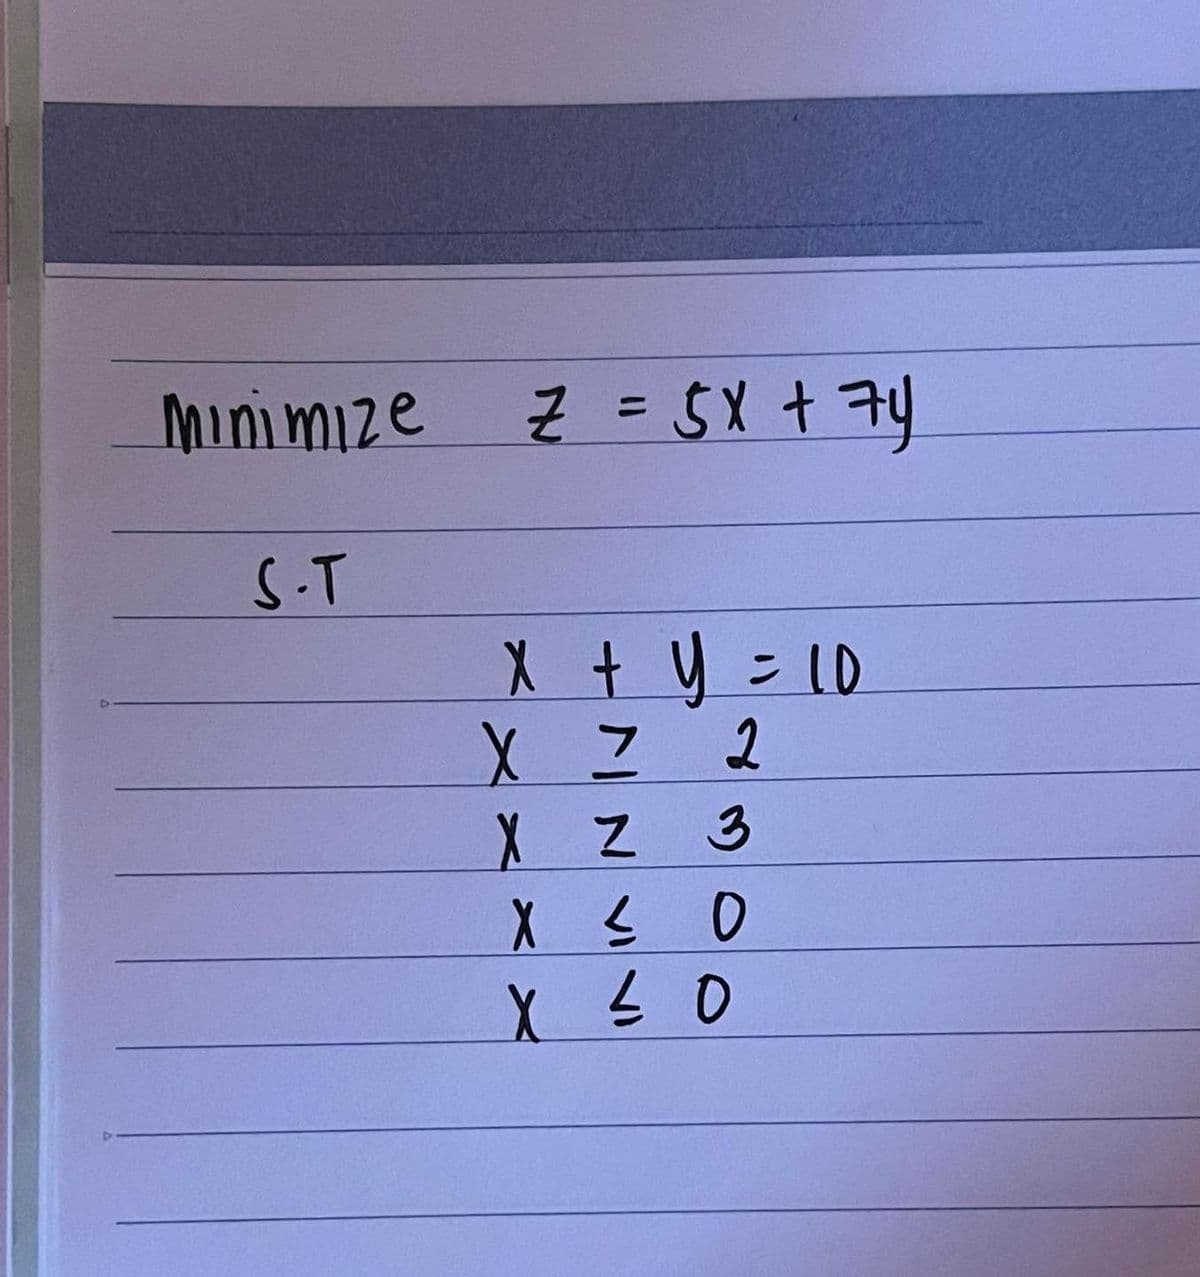 minimize z = 5x + 7y
S.T
x + y = 10
x ≥ 2
x ≥ 3
x ≤ 0
x ≤ 0